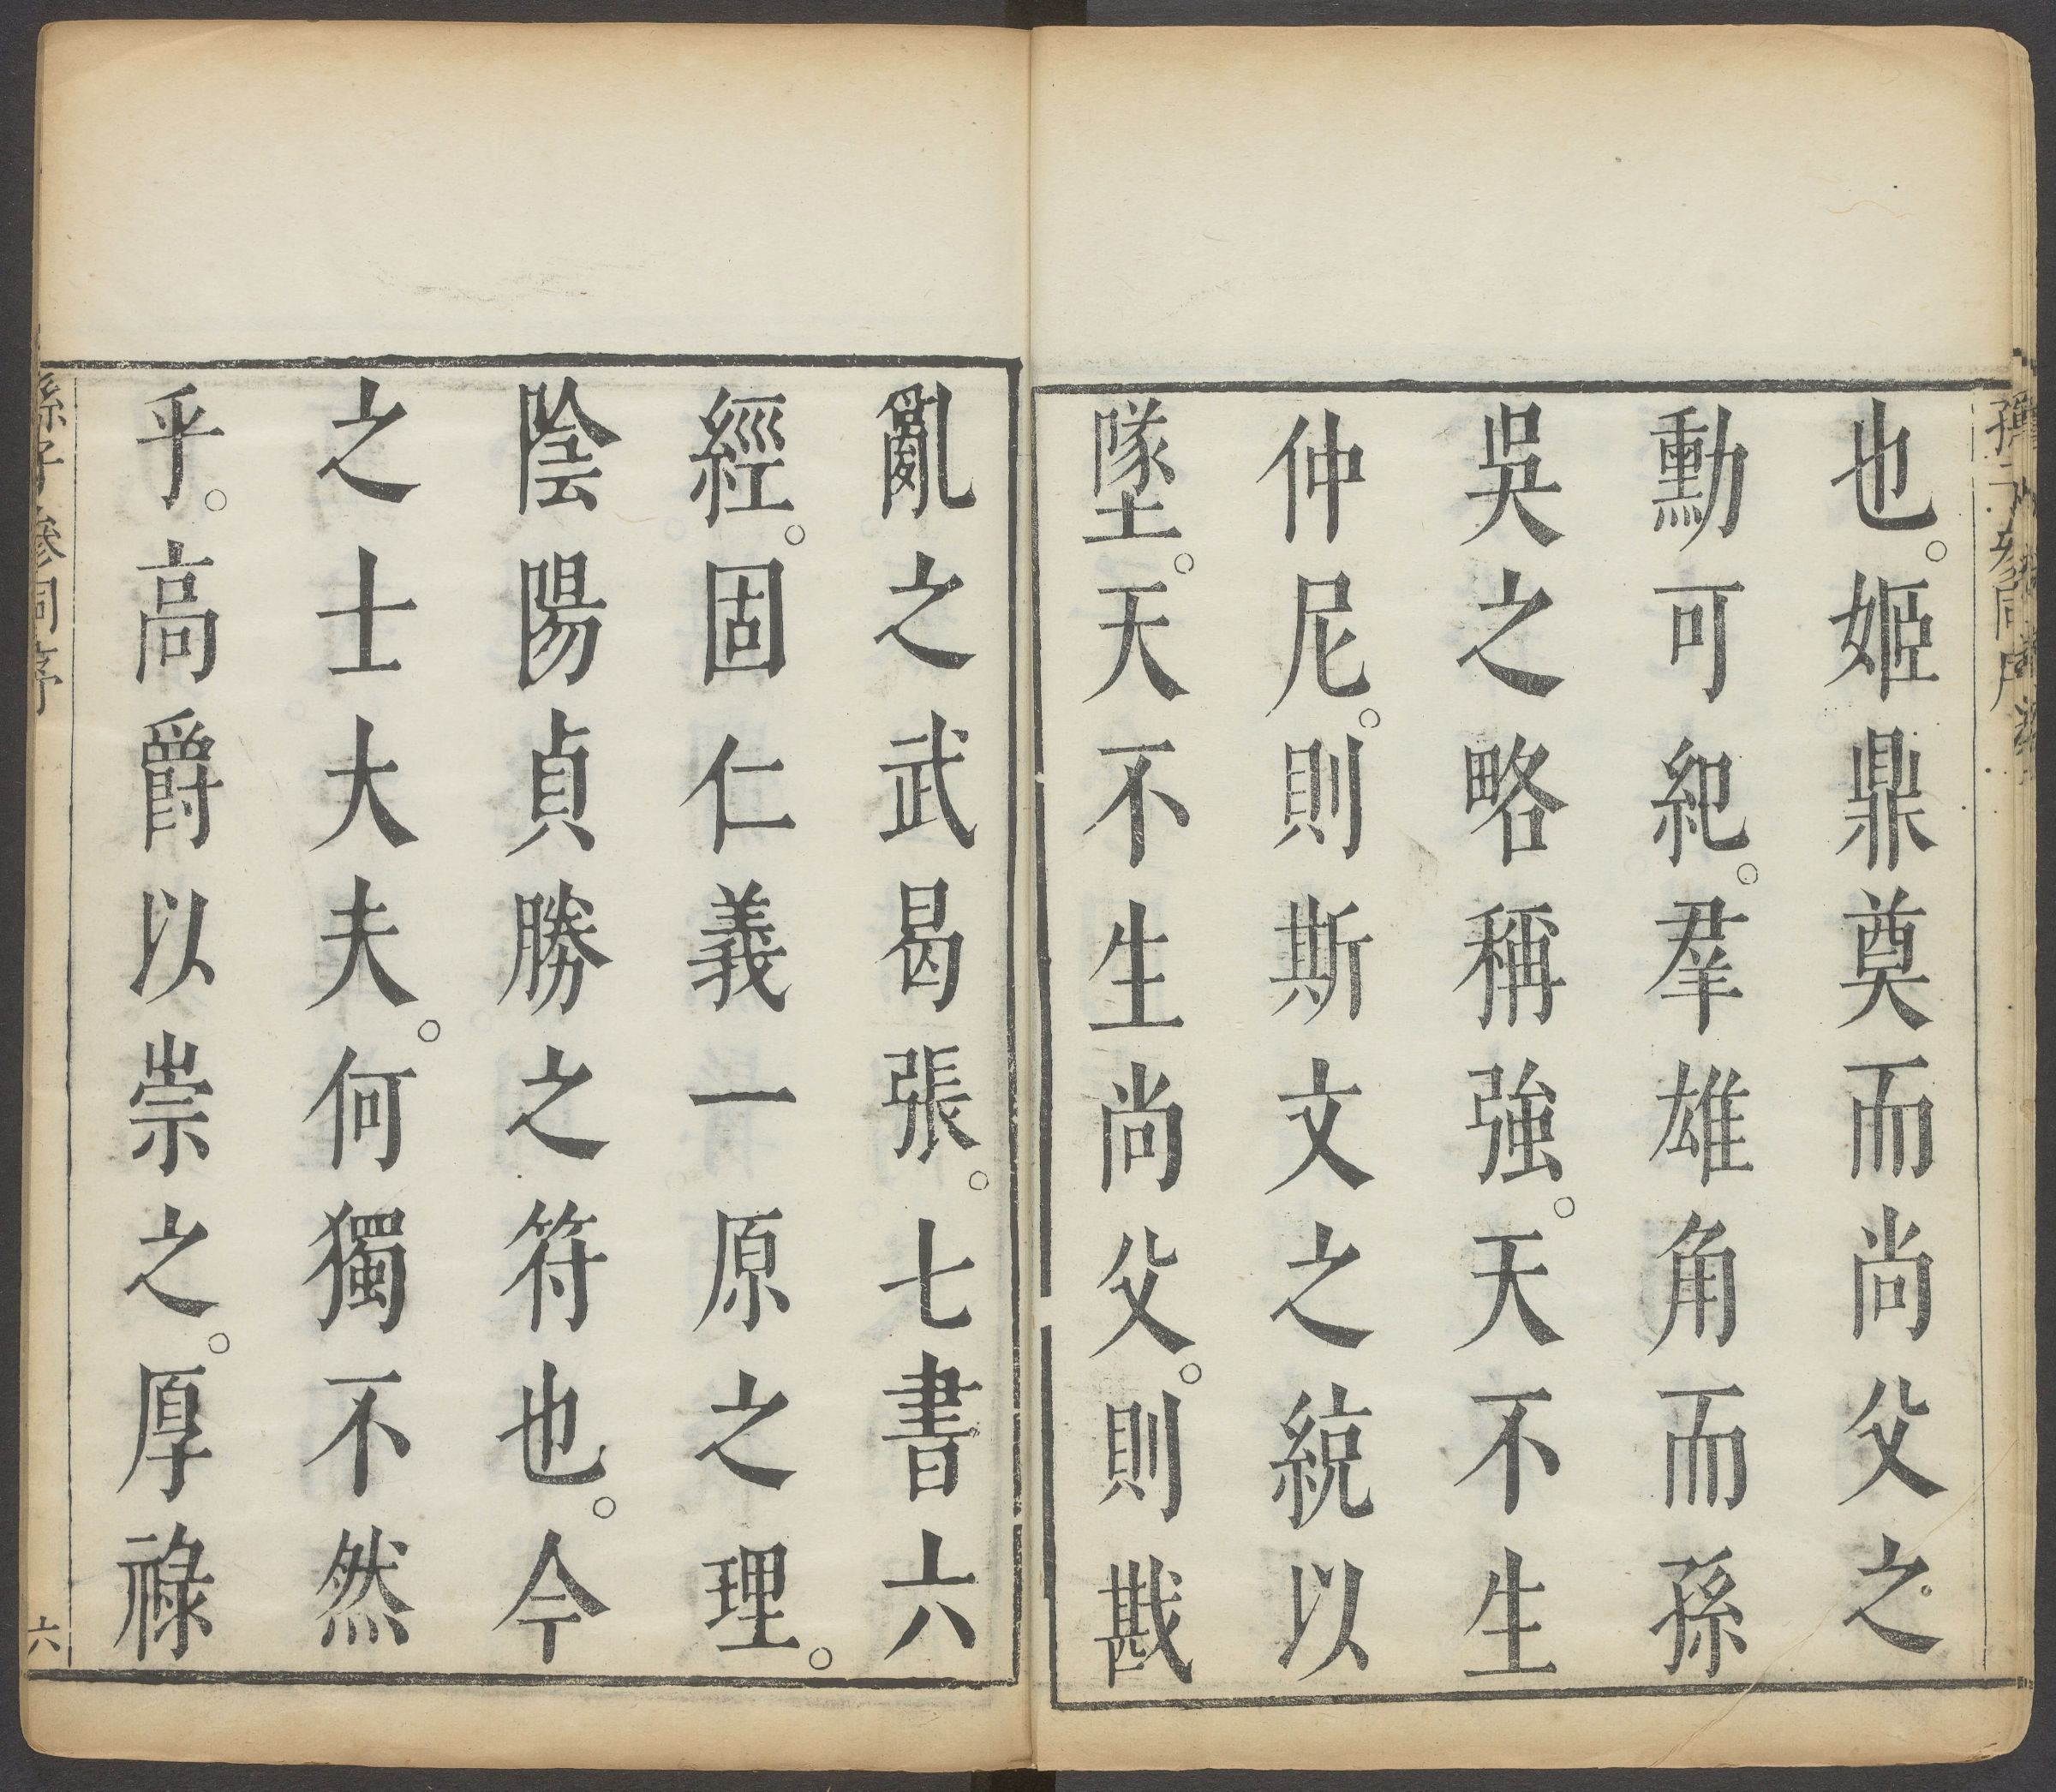 也。姬鼎奠而尚父之
勳可紀。羣雄角而孫
吳之略稱強。天不生
仲尼。則斯文之統以
墜。天不生尚父。則戡
亂之武曷張。七書六
經。固仁義一原之理。
陰陽貞勝之符也。今
之士大夫。何獨不然
乎。高爵以崇之。厚祿
孫子參同序
六